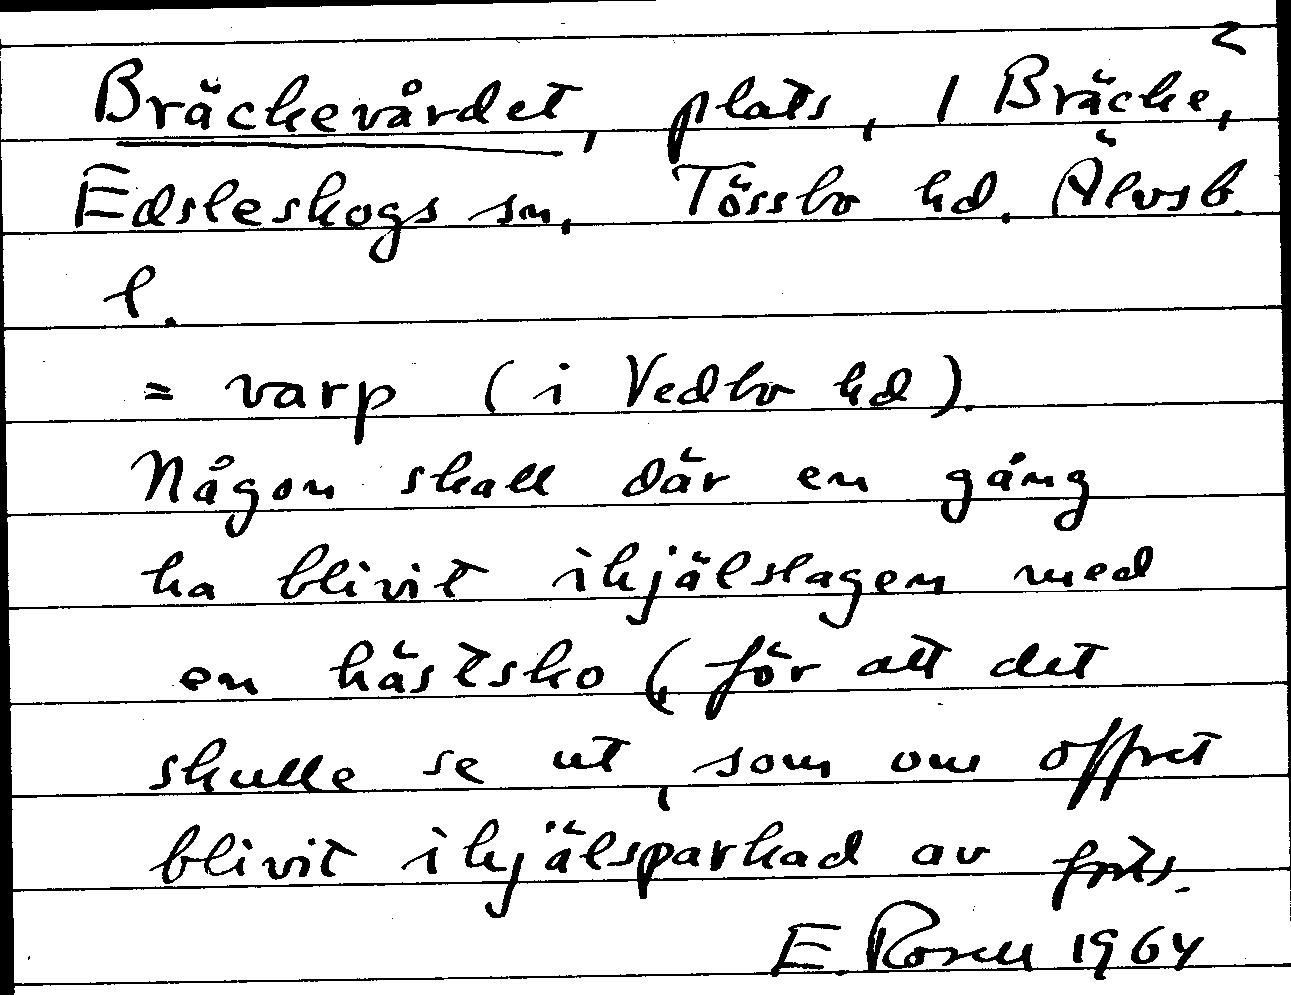 2
Bräckevårdet, plats, 1 Bräcke,
Edsleskogs sn, Tössbo hd. Älvsb.
l.
= varp (i Vedbo hd).
Någon skall där en gång
ha blivit ihjälslagen med
en hästsko (, för att det
skulle se ut, som om offret
blivit ihjälsparkad av forts.
E. Rosell 1964